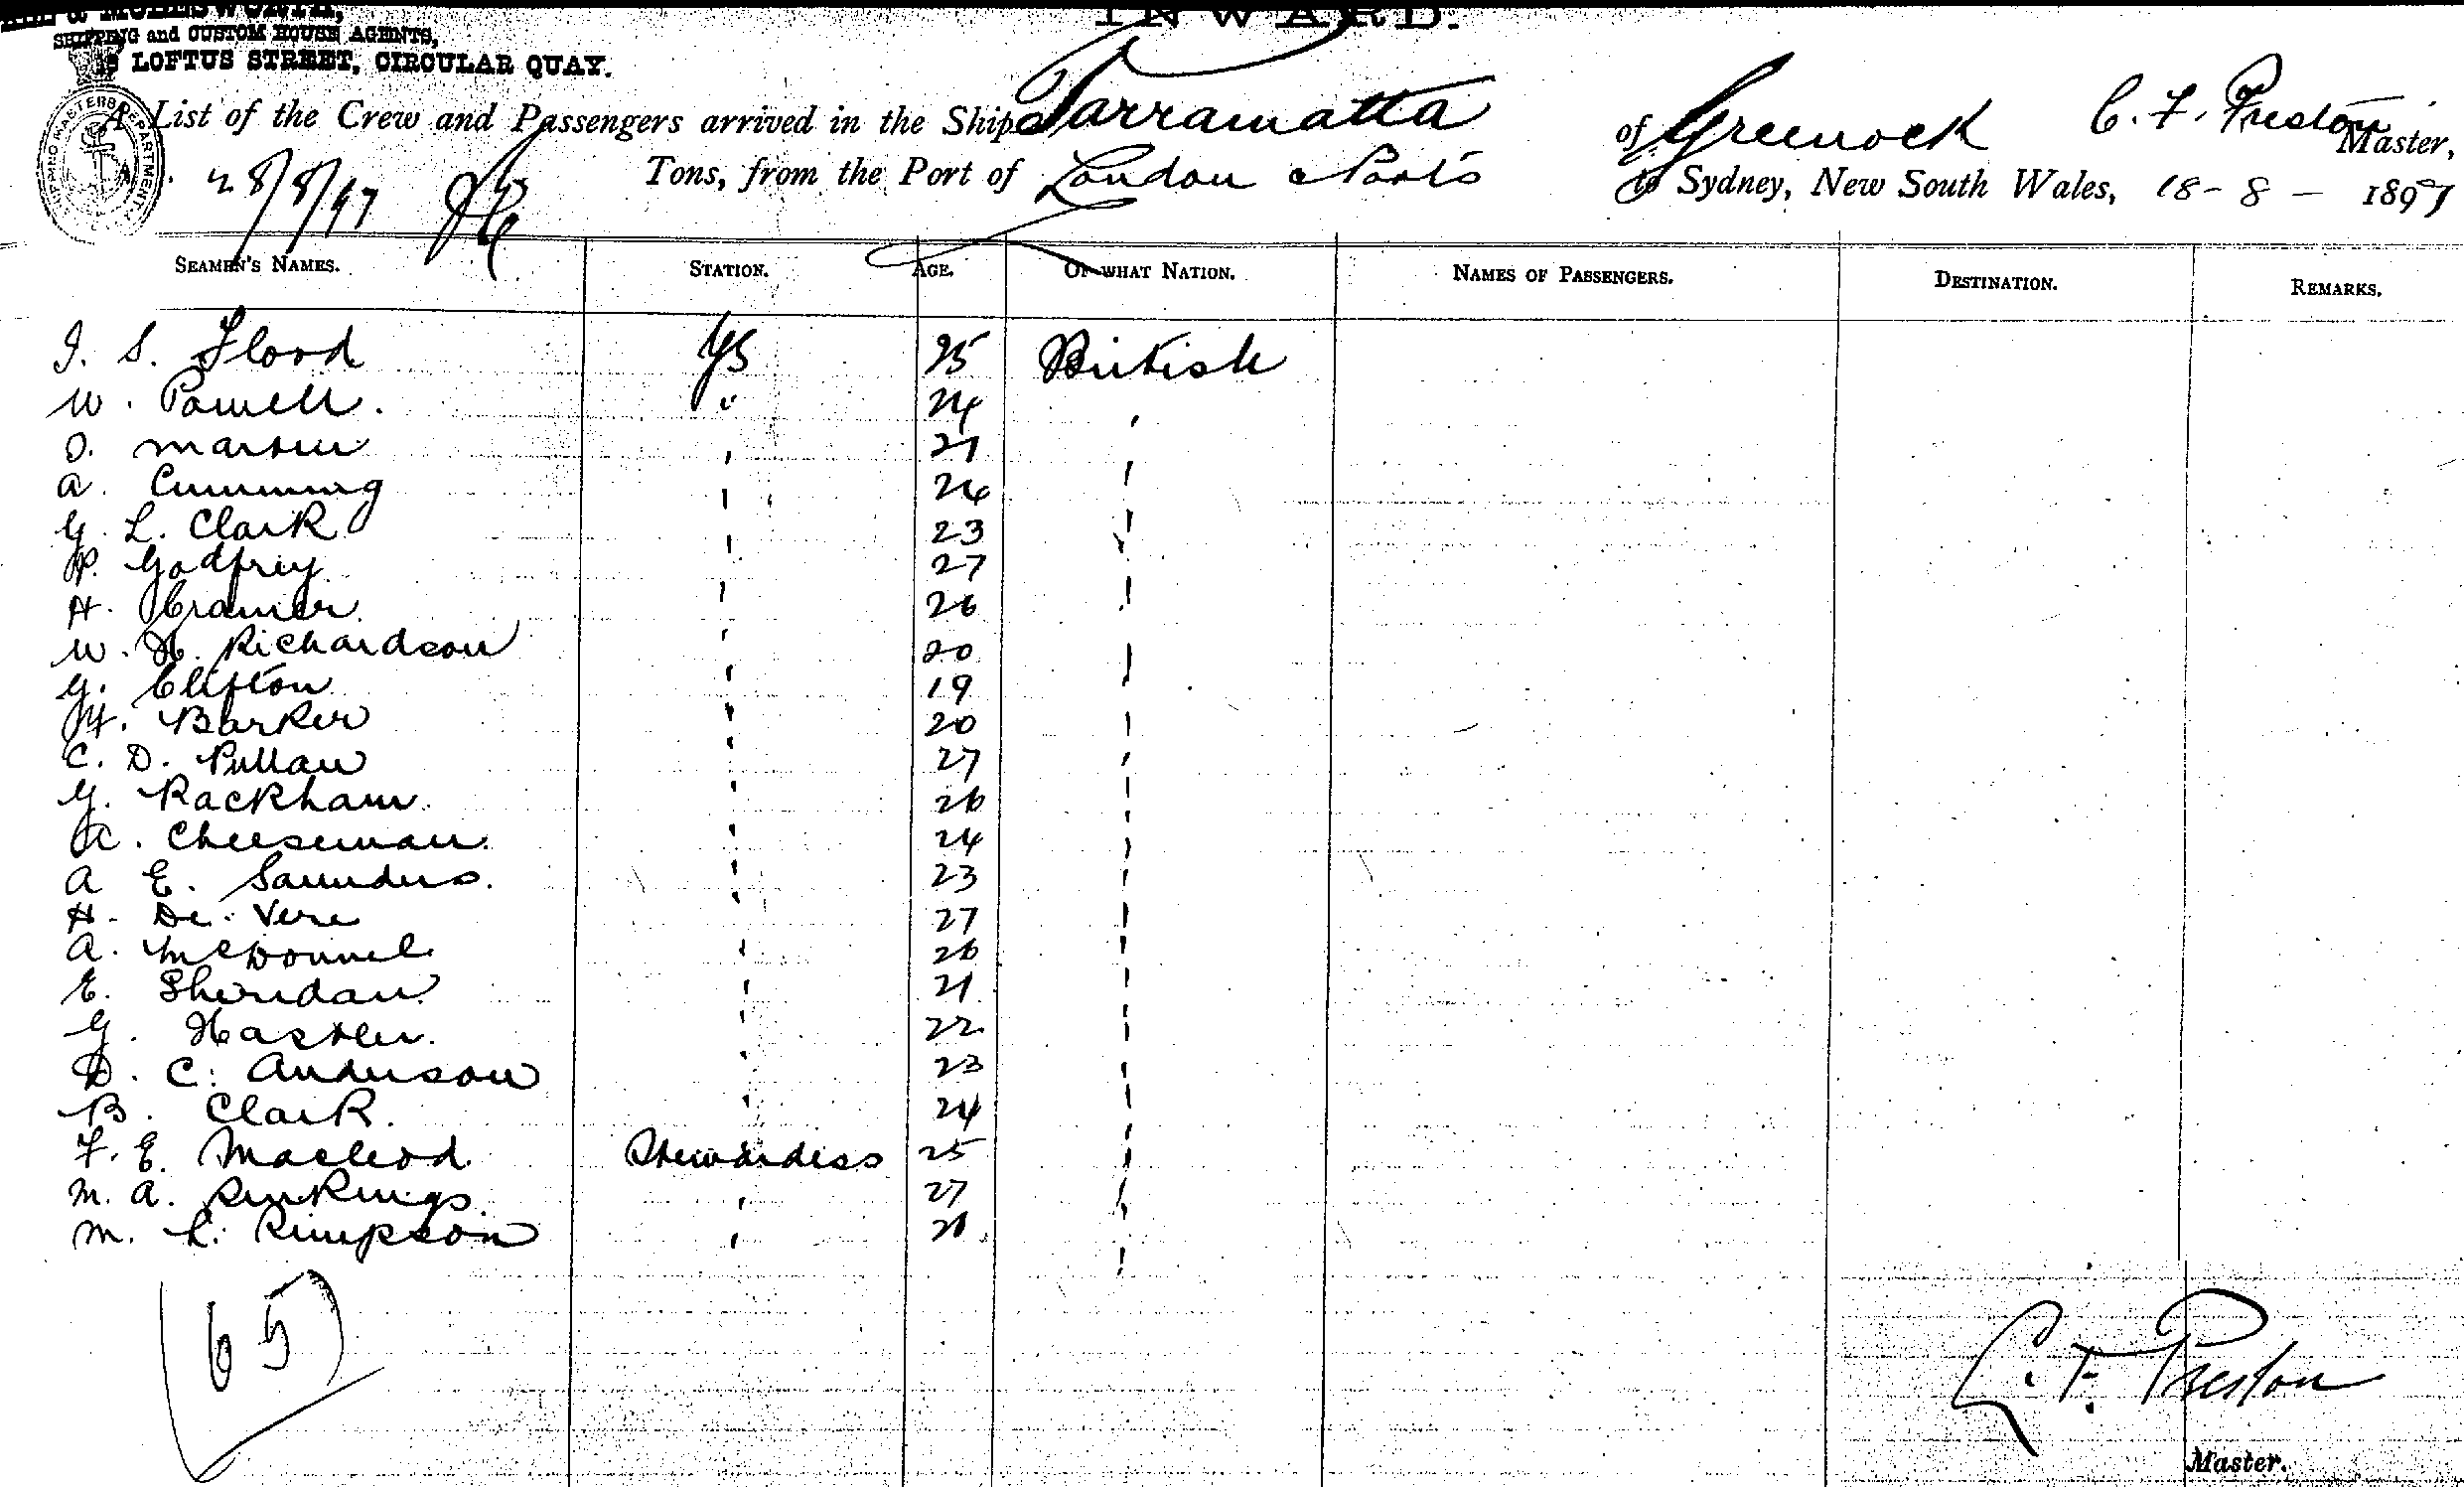 INWARD.
& MOLESWORTH,
SHIPPING and CUSTOM HOUSE AGENTS,
LOFTUS STREET, CIRCULAR QUAY.
SHIPPING MASTERS DEPARTMENT
A List of the Crew and Passengers arrived in the Ship Parramatta of Greenock C. F. Preston Master,
28/8/97 Tons, from the Port of London & Ports to Sydney, New South Wales, 18-8-1897
SEAMEN'S NAMES. STATION. AGE. OF WHAT NATION. NAMES OF PASSENGERS. DESTINATION. REMARKS.
J. S. Flood GS 25 British
W. Powell. " 24 '
D. Martin ' 27 '
A. Cumming ' 24 '
G. L. Clark ' 23 '
P. Godfrey ' 27 '
H. Cramer ' 26 '
W. H. Richardson ' 20 '
G. Clifton ' 19 '
H. Barker ' 20 '
C. D. Pullan ' 27 '
G. Rackham ' 26 '
A. Cheeseman ' 24 '
A E. Saunders. ' 23 '
H. De. Vere ' 27 '
A. McDonnel ' 26 '
E. Sheridan ' 21 '
G. Hastler. ' 22 '
D. C. Anderson ' 23 '
B. Clark. ' 24 '
F. E. Macleod Stewardess 25 '
M. A. ' 27 '
M. L. ' '
65
C. F. Preston
Master.